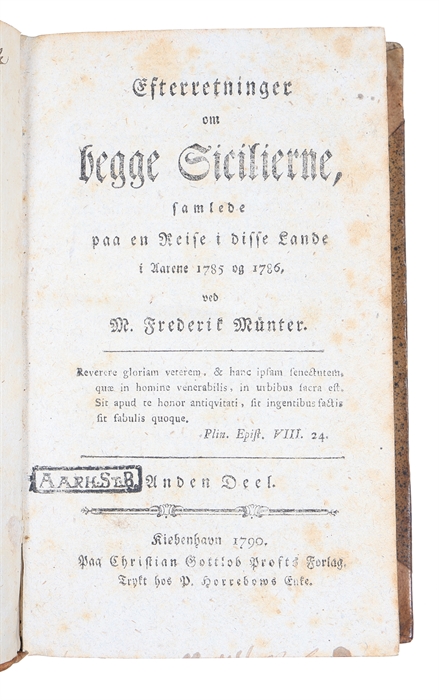 Efterretninger
om
begge Sicilierne,
samlede
paa en Reise i disse Lande
i Aarene 1785 og 1786,
ved
M. Frederik Münter.
Reverere gloriam veterem, & hanc ipsam senectutem,
quæ in homine venerabilis, in urbibus sacra est.
Sit apud te honor antiqvitati, sit ingentibus factis
sit fabulis quoque.
Plin. Epist. VIII. 24.
AARH.ST.B.
Anden Deel.
Kiøbenhavn 1790.
Paa Christian Gottlob Profts Forlag.
Trykt hos P. Horrebows Enke.